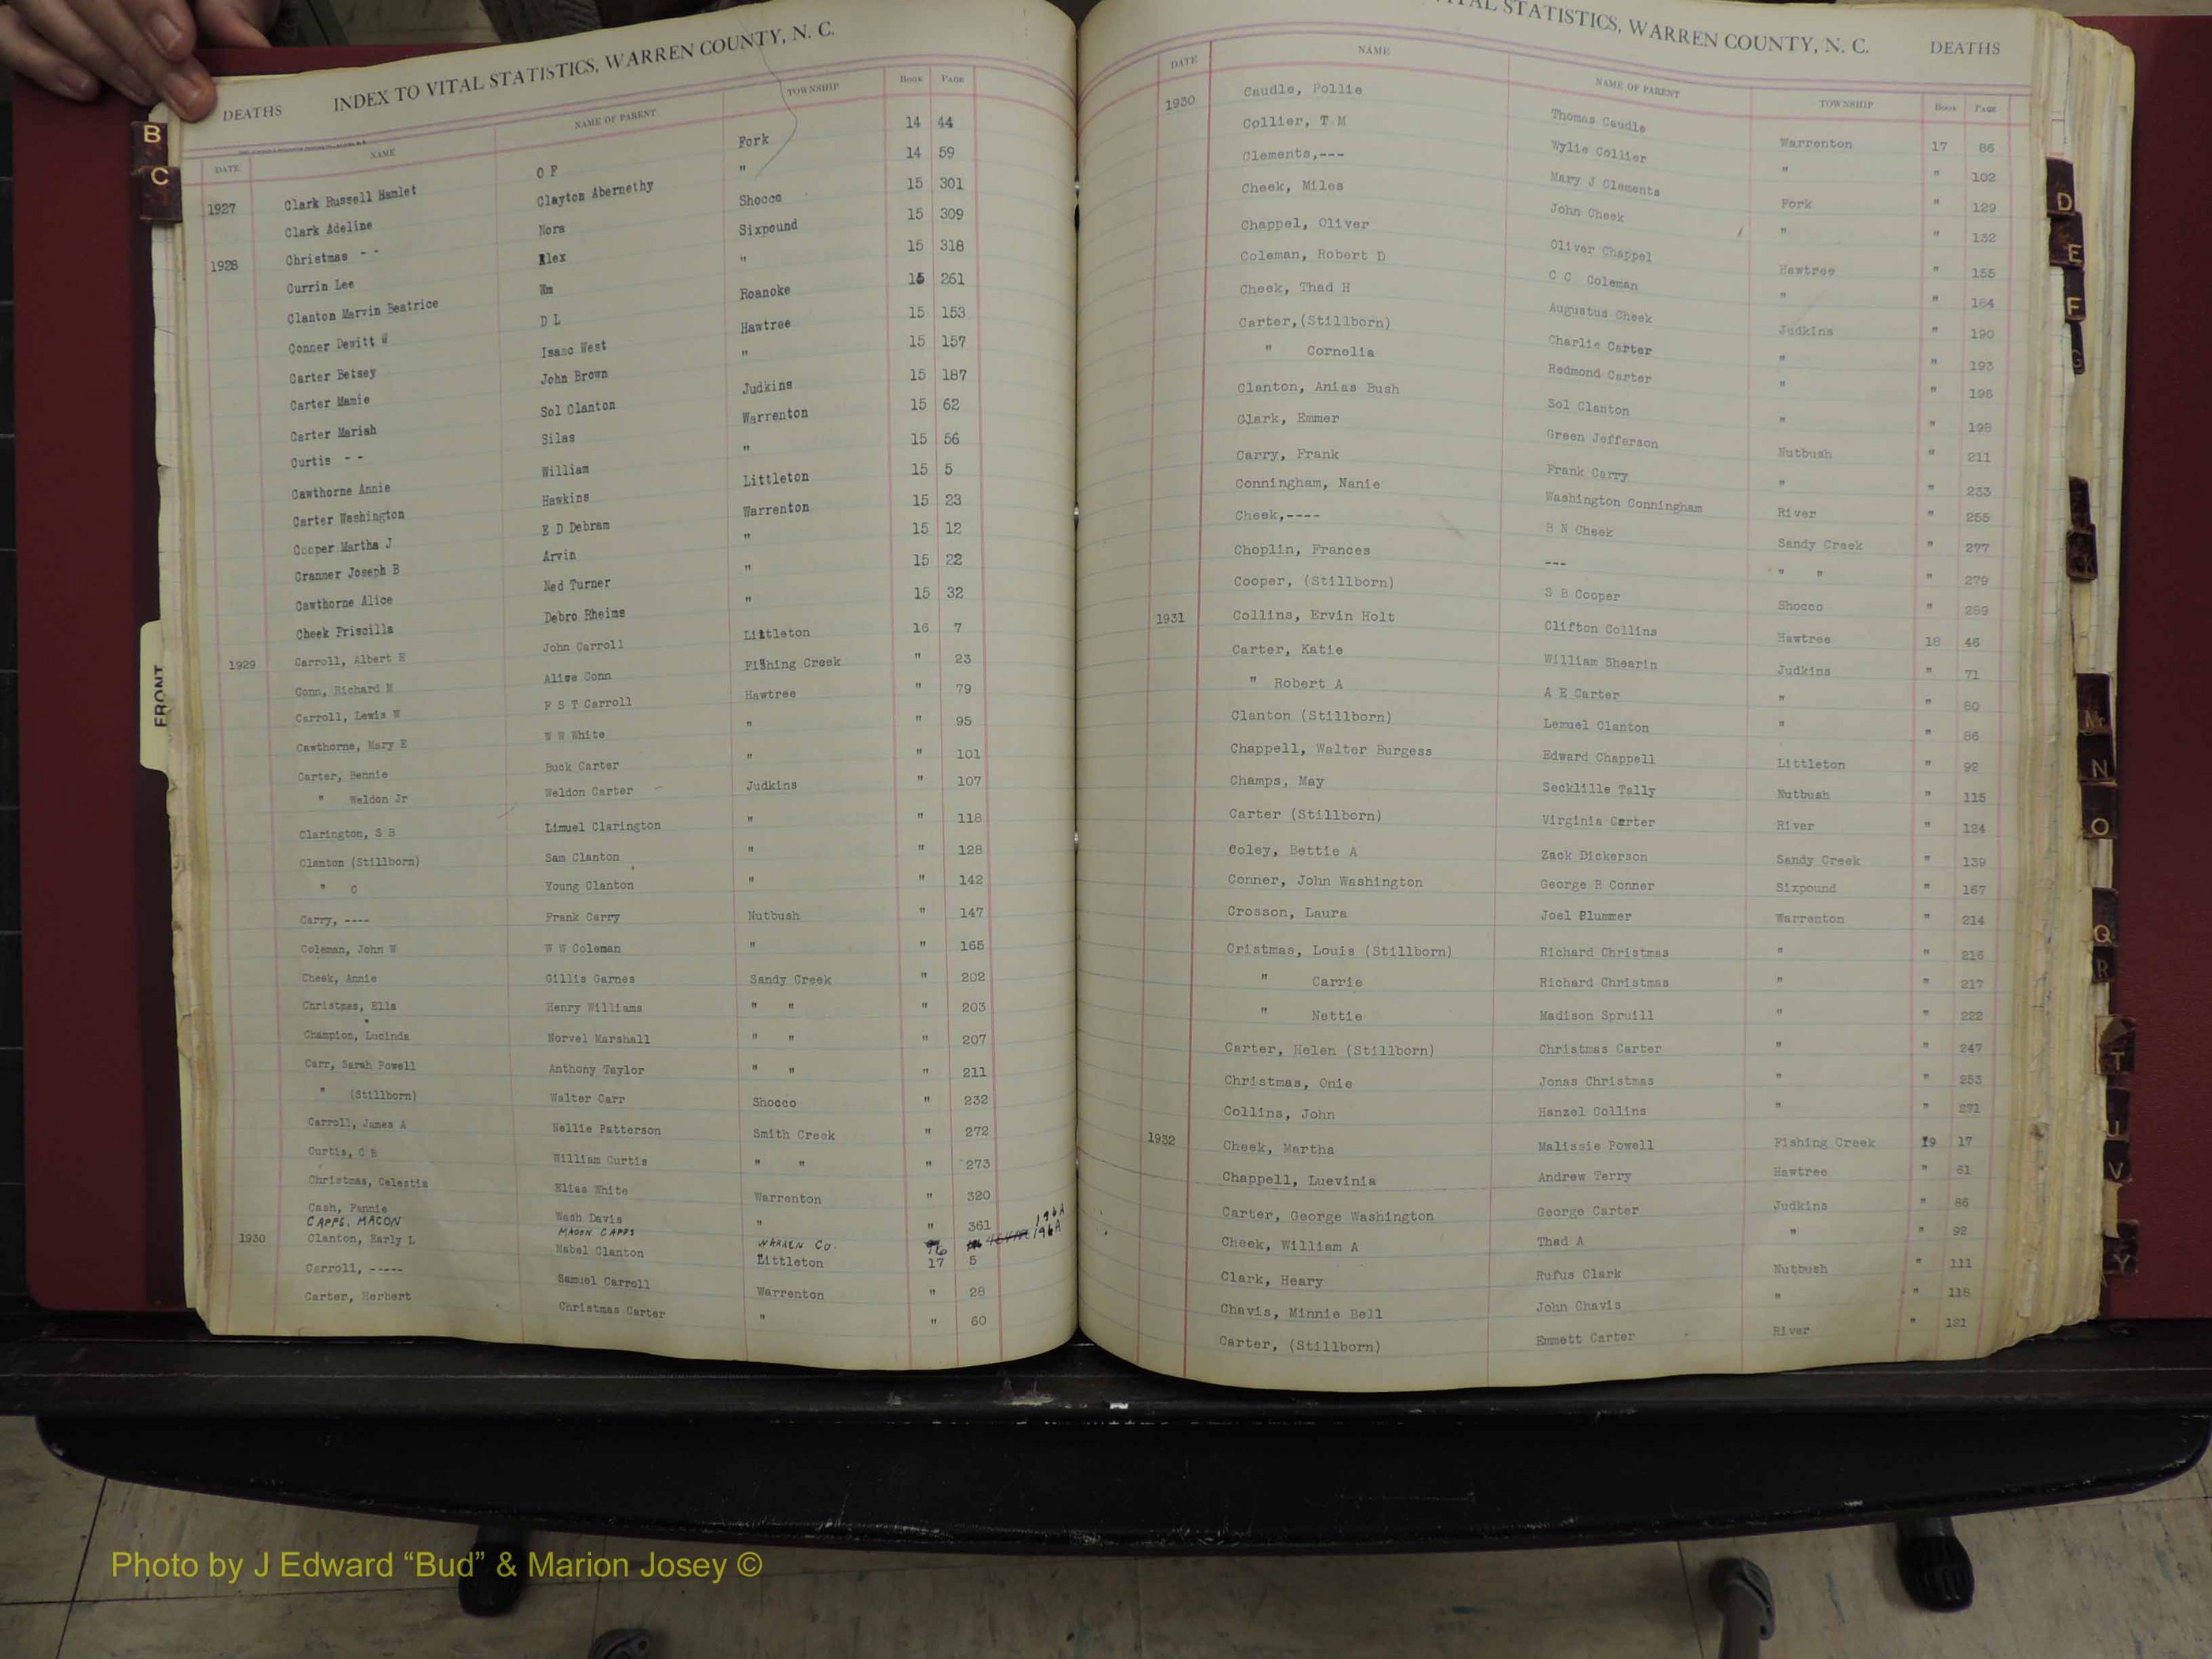 DEATHS INDEX TO VITAL STATISTICS, WARREN COUNTY, N. C.
DATE NAME NAME OF PARENT TOWNSHIP Book Page
1927 Clark Russell Hamlet O F Fork 14 44
Clark Adeline Clayton Abernethy " 14 59
1928 Christmas - - Nora Shocco 15 301
Currin Lee Alex Sixpound 15 309
Clanton Marvin Beatrice Wm " 15 318
Conner Dewitt W D L Roanoke 15 261
Carter Betsey Isaac West Hawtree 15 153
Carter Mamie John Brown " 15 157
Carter Mariah Sol Clanton Judkins 15 187
Curtis - - Silas Warrenton 15 62
Cawthorne Annie William " 15 56
Carter Washington Hawkins Littleton 15 5
Cooper Martha J E D Debram Warrenton 15 23
Cranmer Joseph B Arvin " 15 12
Cawthorne Alice Ned Turner " 15 22
Cheek Priscilla Debro Rheims " 15 32
1929 Carroll, Albert H John Carroll Littleton 16 7
Conn, Richard M Alice Conn Fishing Creek " 23
Carroll, Lewis W F S T Carroll Hawtree " 79
Cawthorne, Mary E W W White " " 95
Carter, Bennie Buck Carter " " 101
" Weldon Jr Weldon Carter Judkins " 107
Clarington, S B Limuel Clarington " " 118
Clanton (Stillborn) Sam Clanton " " 128
" C Young Clanton " " 142
Carry, ---- Frank Carry Nutbush " 147
Coleman, John W W W Coleman " " 165
Cheek, Annie Gillis Garnes Sandy Creek " 202
Christmas, Ella Henry Williams " " " 203
Champion, Lucinda Norvel Marshall " " " 207
Carr, Sarah Powell Anthony Taylor " " " 211
" (Stillborn) Walter Carr Shocco " 232
Carroll, James A Nellie Patterson Smith Creek " 272
Curtis, C B William Curtis " " " 273
Christmas, Celestia Elias White Warrenton " 320
Cash, Fannie Wash Davis " " 361
CAPPS, MACON MACON CAPPS WARREN CO. 16 196A 196A
1930 Clanton, Early L Mabel Clanton Littleton 17 5
Carroll, ----- Samuel Carroll Warrenton " 28
Carter, Herbert Christmas Carter " " 60
VITAL STATISTICS, WARREN COUNTY, N. C. DEATHS
DATE NAME NAME OF PARENT TOWNSHIP Book Page
1930 Caudle, Pollie Thomas Caudle Warrenton 17 86
Collier, T M Wylie Collier " " 102
Clements,--- Mary J Clements Fork " 129
Cheek, Miles John Cheek " " 132
Chappel, Oliver Oliver Chappel Hawtree " 155
Coleman, Robert D C C Coleman " " 184
Cheek, Thad H Augustus Cheek Judkins " 190
Carter,(Stillborn) Charlie Carter " " 193
" Cornelia Redmond Carter " " 196
Clanton, Anias Bush Sol Clanton " " 198
Clark, Emmer Green Jefferson Nutbush " 211
Carry, Frank Frank Carry " " 233
Conningham, Nanie Washington Conningham River " 255
Cheek,---- B N Cheek Sandy Creek " 277
Choplin, Frances --- " " " 279
Cooper, (Stillborn) S B Cooper Shocco " 289
1931 Collins, Ervin Holt Clifton Collins Hawtree 18 46
Carter, Katie William Shearin Judkins " 71
" Robert A A E Carter " " 80
Clanton (Stillborn) Lemuel Clanton " " 86
Chappell, Walter Burgess Edward Chappell Littleton " 92
Champs, May Secklille Tally Nutbush " 115
Carter (Stillborn) Virginia Carter River " 124
Coley, Bettie A Zack Dickerson Sandy Creek " 139
Conner, John Washington George R Conner Sixpound " 167
Crosson, Laura Joel Plummer Warrenton " 214
Cristmas, Louis (Stillborn) Richard Christmas " " 216
" Carrie Richard Christmas " " 217
" Nettie Madison Spruill " " 222
Carter, Helen (Stillborn) Christmas Carter " " 247
Christmas, Onie Jonas Christmas " " 253
Collins, John Hanzel Collins " " 271
1932 Cheek, Martha Malissie Powell Fishing Creek 19 17
Chappell, Luevinia Andrew Terry Hawtree " 61
Carter, George Washington George Carter Judkins " 86
Cheek, William A Thad A " " 92
Clark, Heary Rufus Clark Nutbush " 111
Chavis, Minnie Bell John Chavis " " 118
Carter, (Stillborn) Emmett Carter River " 121
B
C
FRONT
D
E
F
G
Mc
N
O
Q
R
T
U
V
Y
Photo by J Edward “Bud” & Marion Josey ©